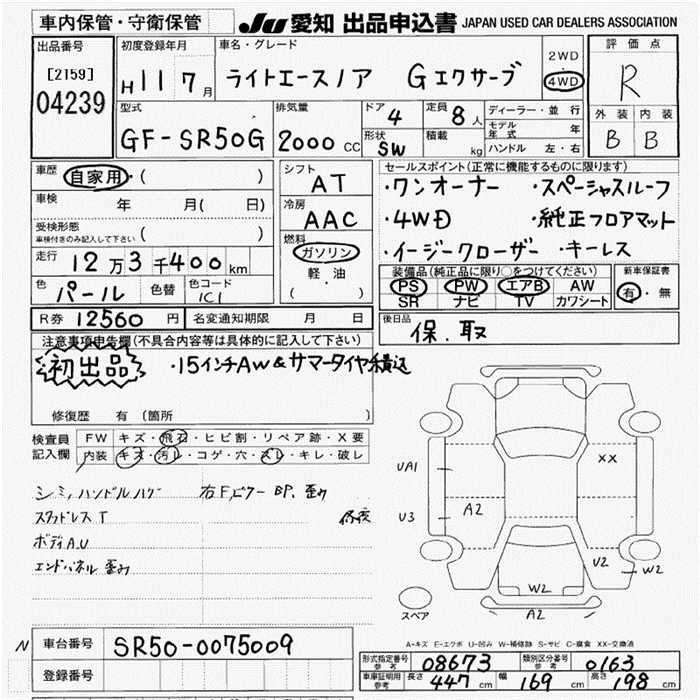 車内保管・守衛保管 JU 愛知 出品申込書 JAPAN USED CAR DEALERS ASSOCIATION
出品番号 初度登録年月 車名・グレード 2WD 評価点
[2159] H 11 7月 ライトエースノア Gエクサーブ 4WD R
04239 型式 排気量 ドア 4 定員 8人 ディーラー・並行 外装 内装
GF-SR50G 2000 CC 形状 SW 積載 kg モデル年式 年 B B
ハンドル 左・右
車歴 自家用・( ) シフト AT セールスポイント(正常に機能するものに限ります)
車検 年 月( 日) 冷房 AAC ・ワンオーナー ・スペーシャスルーフ
受検形態 車検付きのみ記入して下さい ( ) 燃料 ・4WD ・純正フロアマット
走行 12万3千400km ガソリン ・イージークローザー ・キーレス
軽油 装備品(純正品に限り○をつけてください) 新車保証書
色 パール 色替 色コード 1C1 ( ) PS PW エアB AW 有・無
SR ナビ TV カワシート
R券 12560円 名変通知期限 月 日 後日品
注意事項申告欄(不具合内容等は具体的に記入して下さい) 保.取
初出品 ・15インチAW&サマータイヤ積込
修復歴 有 (箇所 )
検査員記入欄 FW キズ・飛石・ヒビ割・リペア跡・X要
内装 キズ・汚レ・コゲ・穴・スレ・キレ・破レ
シミ,ハンドルハゲ 右F,ピラーBP,歪み
スタッドレスT
ボディA.U
エンドパネル歪み
UA1 XX
U3 A2
U2 W2
W2
スペア A2
A-キズ E-エクボ U-凹み W-補修跡 S-サビ C-腐食 XX-交換済
N 車台番号 SR50-0075009
登録番号
形式指定番号 参考 08673 類別区分番号 参考 0163
車庫証明用 参考 長さ 447cm 幅 169cm 高さ 198cm